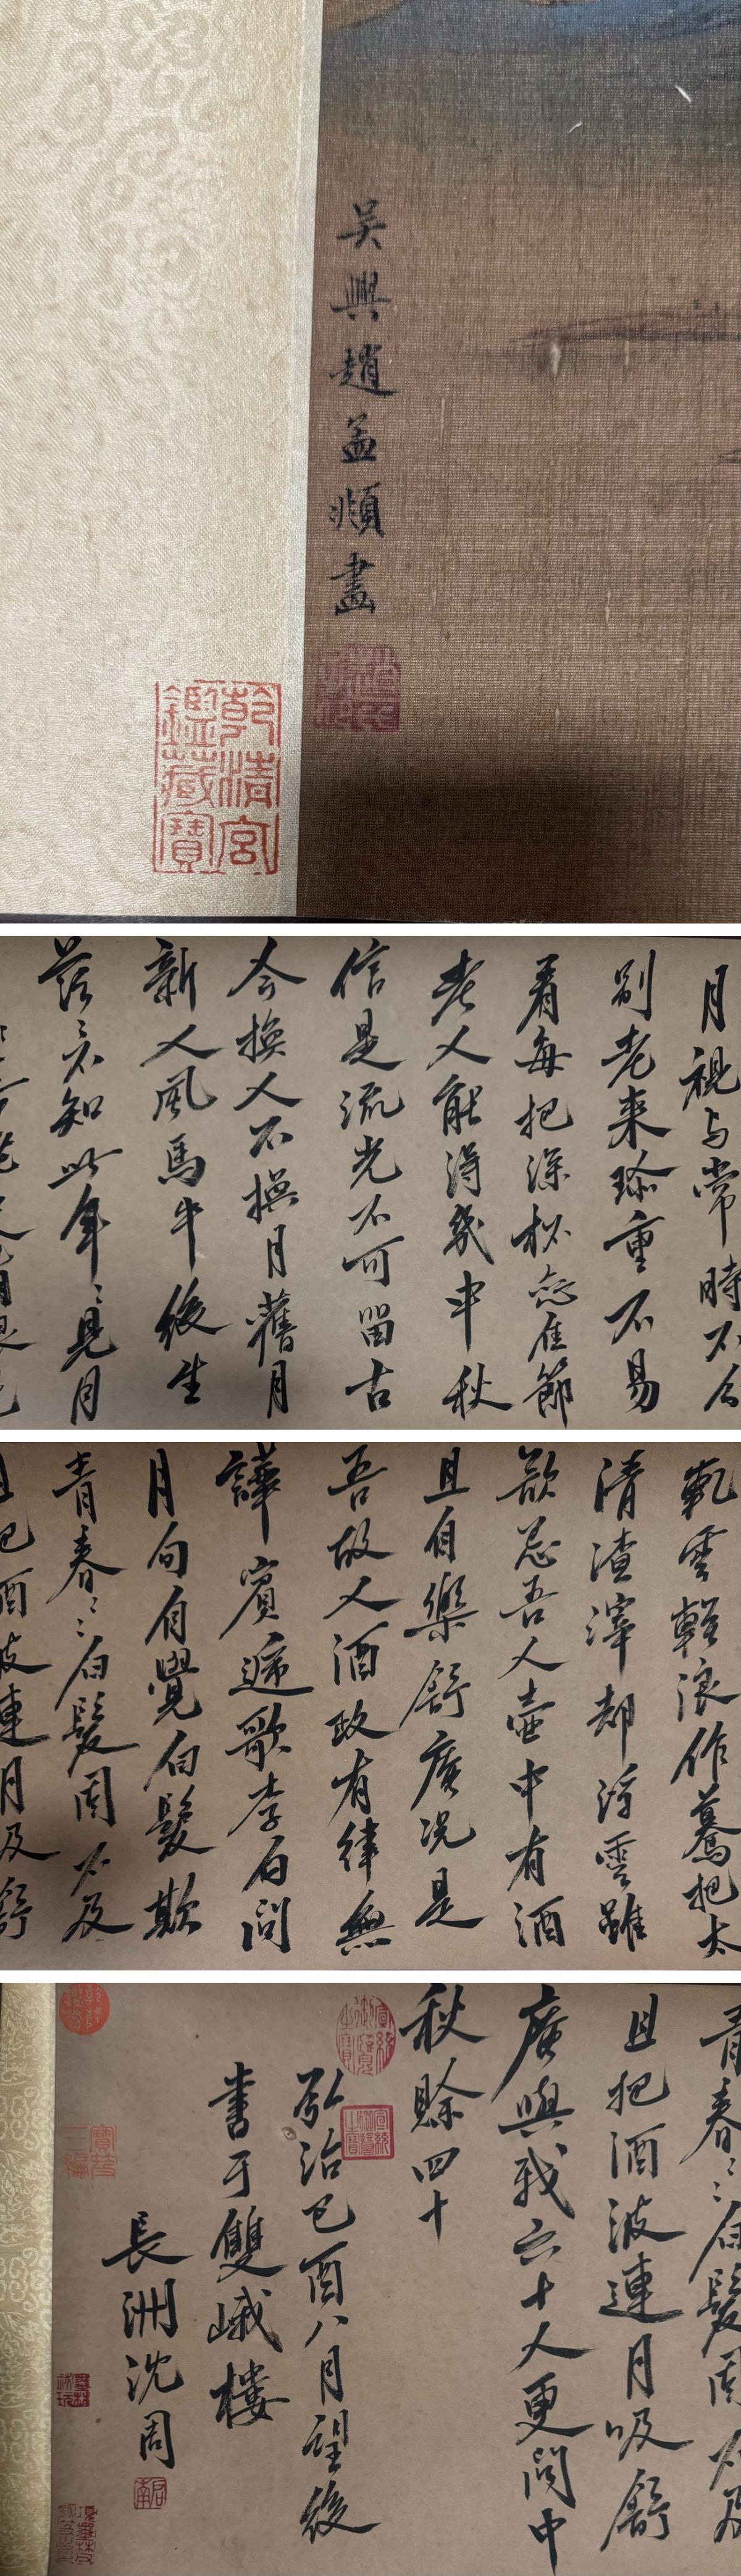 吳興趙孟頫畫
乾清宮
鑑藏寶
月視與常時不
別老來珍重不易
看每把深杯恋佳節
老人能得幾中秋
信是流光不可留古
今換人不換月舊月
新人風馬牛後生
茫〻不知此年〻見月
軋雲輕浪作驀把太
清渣滓却浮雲雖
欲忌吾人壺中有酒
且自樂舒廣況是
吾故人酒政有律無
譁賓遞歌李白問
月句自覺白髮欺
青春〻〻白髮固不及
且把酒波連月吸舒
青春〻〻白髮固不及
且把酒波連月吸舒
廣與我六十人更問中
秋賒四十
弘治己酉八月望後
書于雙峨樓
長洲沈周